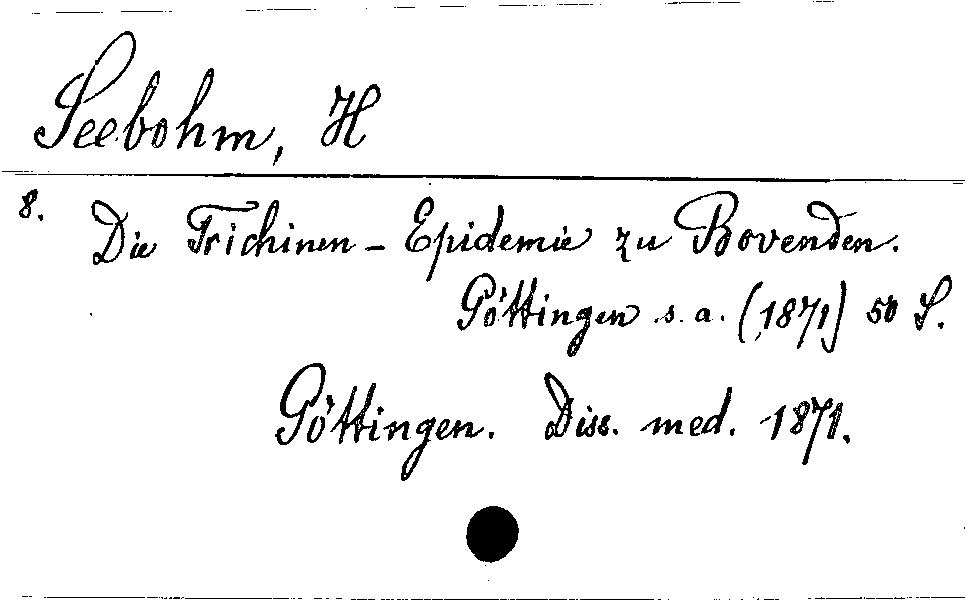 Seebohm, H
8. Die Trichinen-Epidemie zu Bovenden.
Göttingen s. a. (1871) 50 S.
Göttingen. Diss. med. 1871.